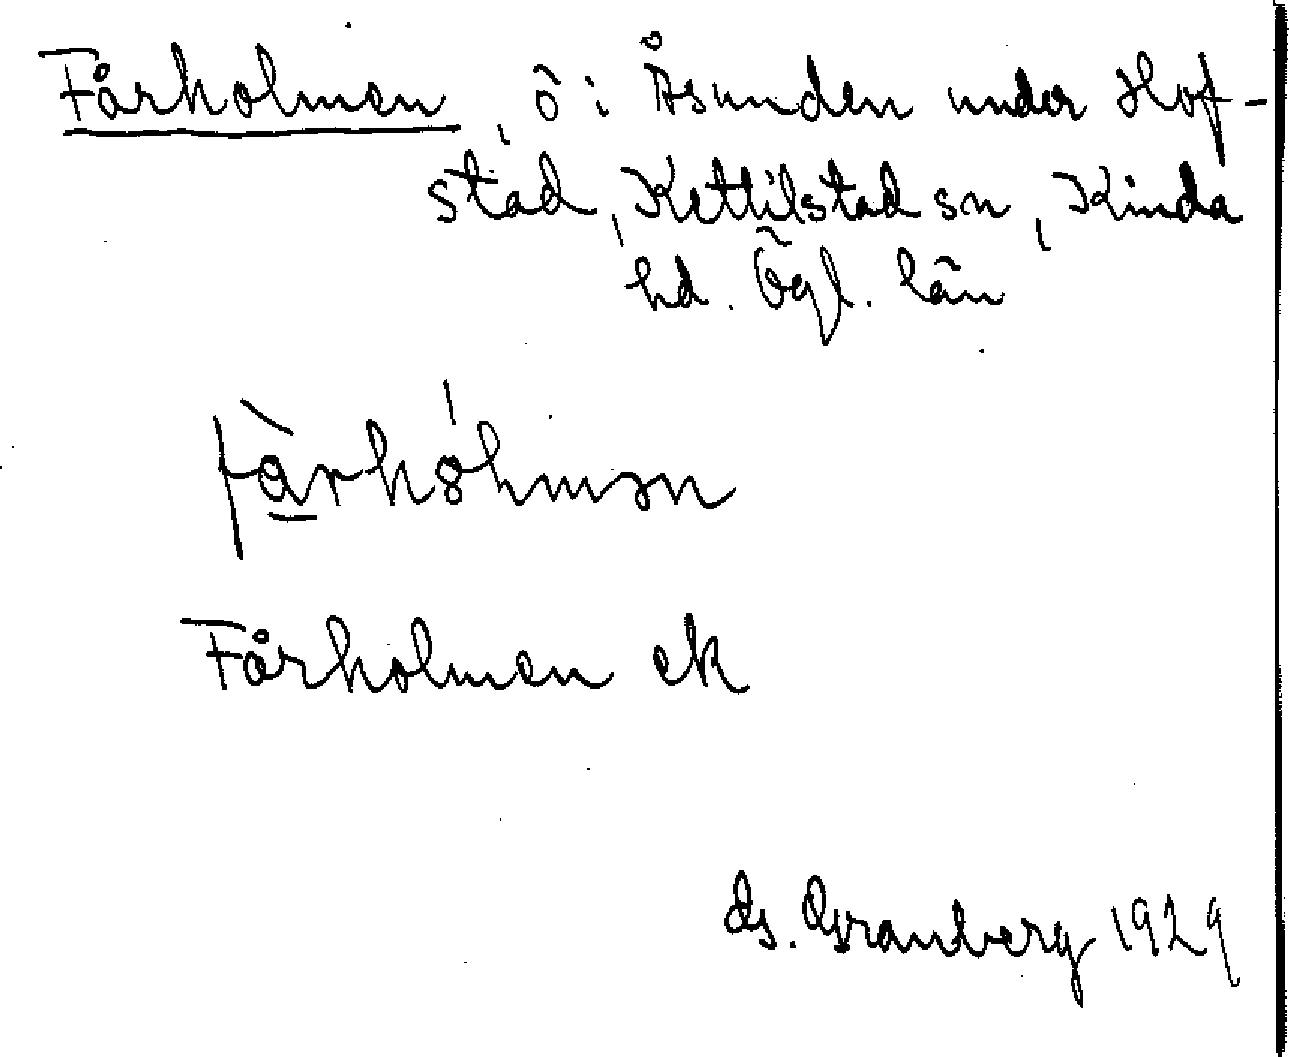 Fårholmen, ö i Åsunden under Hof-
stad, Kettilstad sn, Kinda
hd. Ögl. län
Fårholmen ek
G. Granberg 1929